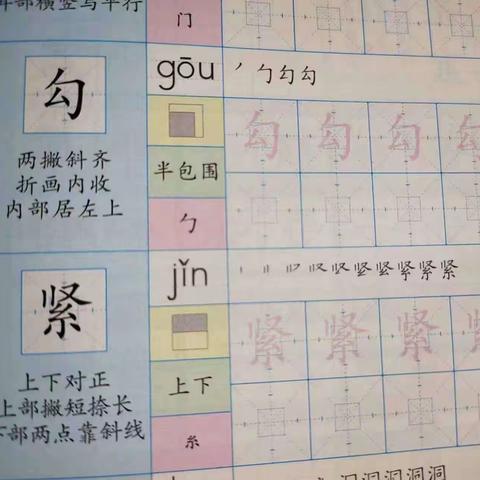 部横竖与平行
门
勾
gōu
丿 勹 勾 勾
两撇斜齐
折画内收
内部居左上
半包围
勹
勾 勾 勾 勾
紧
jǐn
紧 紧 紧
上下对正
上部撇短捺长
下部两点靠斜线
上下
糸
紧 紧 紧 紧
洞 洞 洞